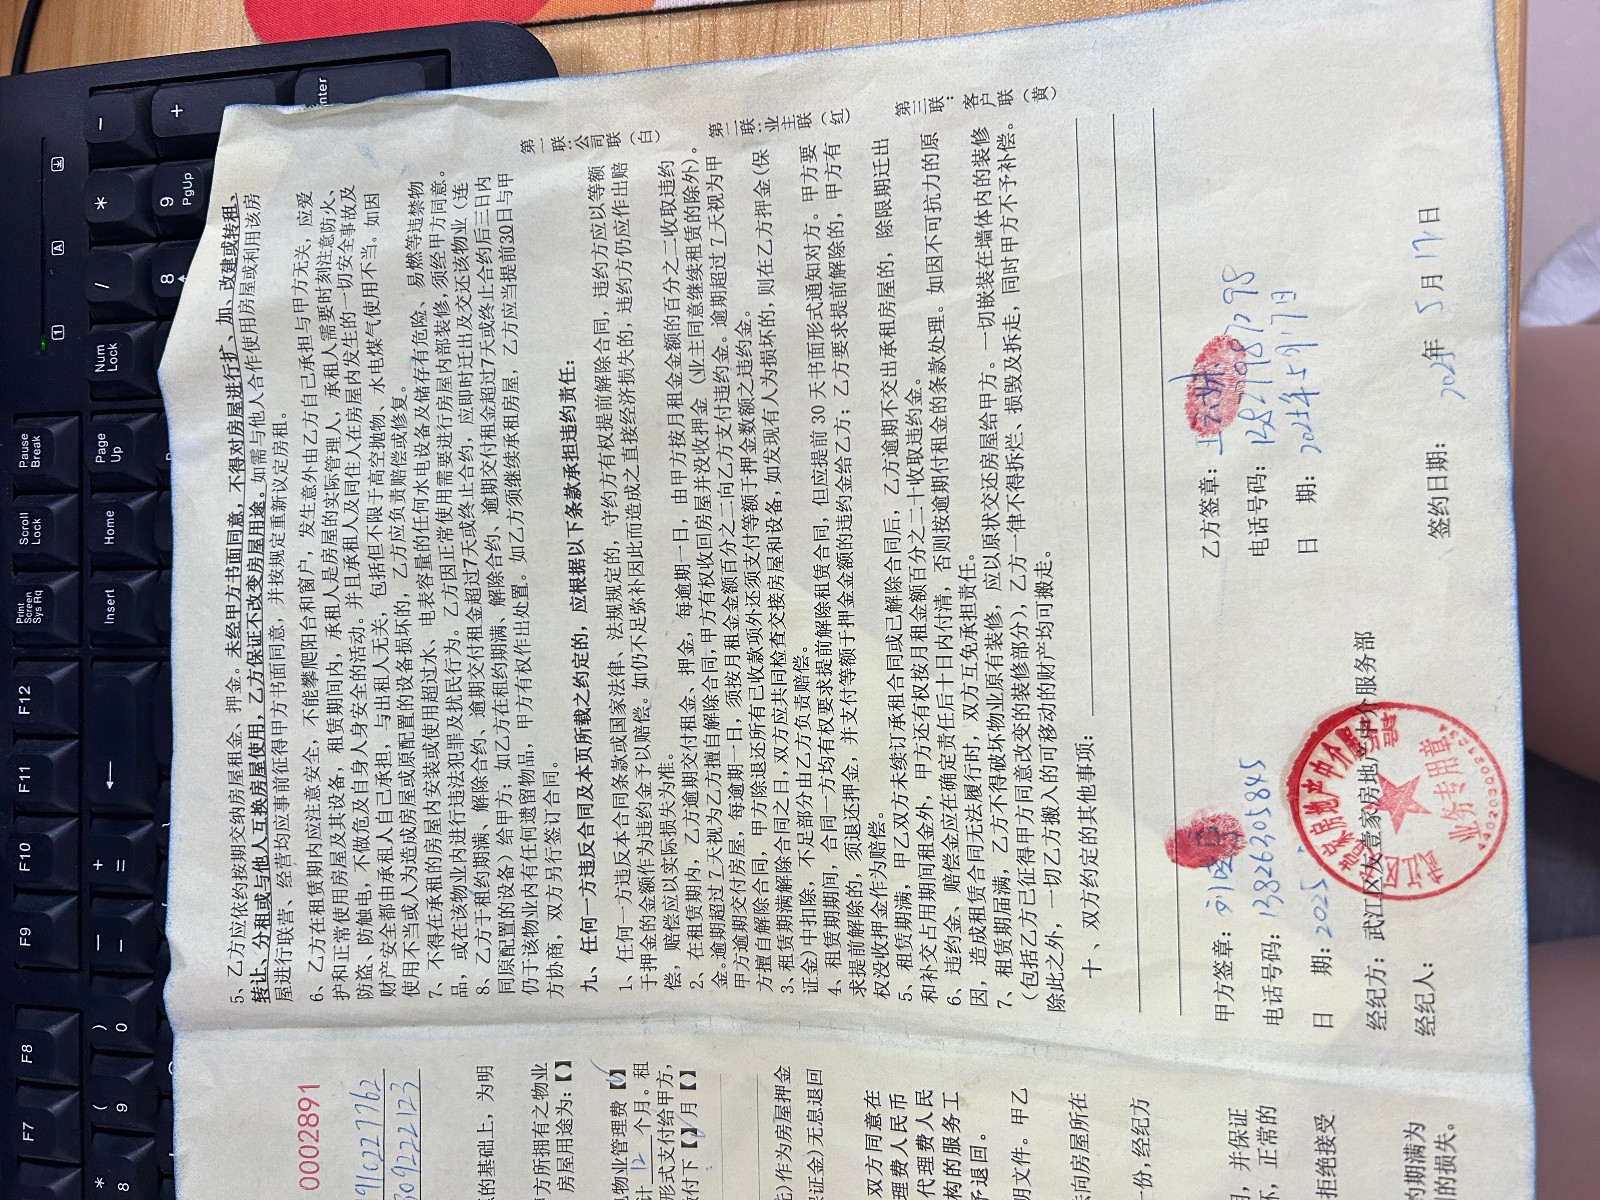 5、乙方应依约按期交纳房屋租金、押金。未经甲方书面同意，不得对房屋进行扩、加、改建或转租、
转让、分租或与他人互换房屋使用，乙方保证不改变房屋用途。如需与他人合作使用房屋或利用该房
屋进行联营、经营均应事前征得甲方书面同意，并按规定重新议定房租。
6、乙方在租赁期内应注意安全，不能攀爬阳台和窗户，发生意外由乙方自己承担与甲方无关，应爱
护和正常使用房屋及其设备，租赁期间内，承租人是房屋的实际管理人，承租人需要时刻注意防火、
防盗、防触电，不做危及自身人身安全的活动。并且承租人及同住人在房屋内发生的一切安全事故及
财产安全都由承租人自己承担，与出租人无关，包括但不限于高空抛物、水电煤气使用不当。如因
使用不当或人为造成房屋或原配置的设备损坏的，乙方应负责赔偿或修复。
7、不得在承租的房屋内安装或使用超过水、电表容量的任何水电设备及储存有危险、易燃等违禁物
品，或在该物业内进行违法犯罪及扰民行为。乙方因正常使用需要进行房屋内部装修，须经甲方同意。
8、乙方于租约期满、解除合约、逾期交付租金超过7天或终止合约，应即时迁出及交还该物业（连
同原配置的设备）给甲方；如乙方在租约期满、解除合约、逾期交付租金超过7天或终止合约后三日内
仍于该物业内有任何遗留物品，甲方有权作出处置。如乙方须继续承租房屋，乙方应当提前30日与甲
方协商，双方另行签订合同。
九、任何一方违反合同及本页所载之约定的，应根据以下条款承担违约责任：
1、任何一方违反本合同条款或国家法律、法规规定的，守约方有权提前解除合同，违约方应以等额
于押金的金额作为违约金予以赔偿。如仍不足弥补因此而造成之直接经济损失的，违约方仍应作出赔
偿，赔偿应以实际损失为准。
2、在租赁期内，乙方逾期交付租金、押金，每逾期一日，由甲方按月租金金额的百分之二收取违约
金。逾期超过7天视为乙方擅自解除合同，甲方有权收回房屋并没收押金（业主同意继续租赁的除外）。
甲方逾期交付房屋，每逾期一日，须按月租金金额百分之二向乙方支付违约金。逾期超过7天视为甲
方擅自解除合同，甲方除退还所有已收款项外还须支付等额于押金数额之违约金。
3、租赁期满解除合同之日，双方应共同检查交接房屋和设备，如发现有人为损坏的，则在乙方押金（保
证金）中扣除，不足部分由乙方负责赔偿。
4、租赁期期间，合同一方均有权要求提前解除租赁合同，但应提前30天书面形式通知对方。甲方要
求提前解除的，须退还押金，并支付等额于押金金额的违约金给乙方；乙方要求提前解除的，甲方有
权没收押金作为赔偿。
5、租赁期满，甲乙双方未续订承租合同或已解除合同后，乙方逾期不交出承租房屋的，除限期迁出
和补交占用期间租金外，甲方还有权按月租金额百分之二十收取违约金。
6、违约金、赔偿金应在确定责任后十日内付清，否则按逾期付租金的条款处理。如因不可抗力的原
因，造成租赁合同无法履行时，双方互免承担责任。
7、租赁期届满，乙方不得破坏物业原有装修，应以原状交还房屋给甲方。一切嵌装在墙体内的装修
（包括乙方已征得甲方同意改变的装修部分），乙方一律不得拆烂、损毁及拆走，同时甲方不予补偿。
除此之外，一切乙方搬入的可移动的财产均可搬走。
十、双方约定的其他事项：
甲方签章：
乙方签章：
电话号码：13826305845
电话号码：
日 期：2025
日 期：
经纪方：武江区友壹家房地产中介服务部
经纪人：
签约日期： 年 5 月 17 日
业务专用章
第一联：公司联（白）
第二联：业主联（红）
第三联：客户联（黄）
0002891
的基础上，为明
方所拥有之物业
房屋用途为：【】
物业管理费【】
计 12 个月。租
形式支付给甲方，
付下【】月【】
)作为房屋押金
证金)无息退回
双方同意在
理费人民币
代理费人民
构的服务工
予退回。
明文件。甲乙
向房屋所在
一份，经纪方
，并保证
，正常的
拒绝接受
期满为
的损失。
Pause Break
Scroll Lock
Print Screen Sys Rq
F12
F11
F10
F9
F8
F7
Page Up
Home
Insert
Num Lock
/
*
-
+
9 PgUp
8
Enter